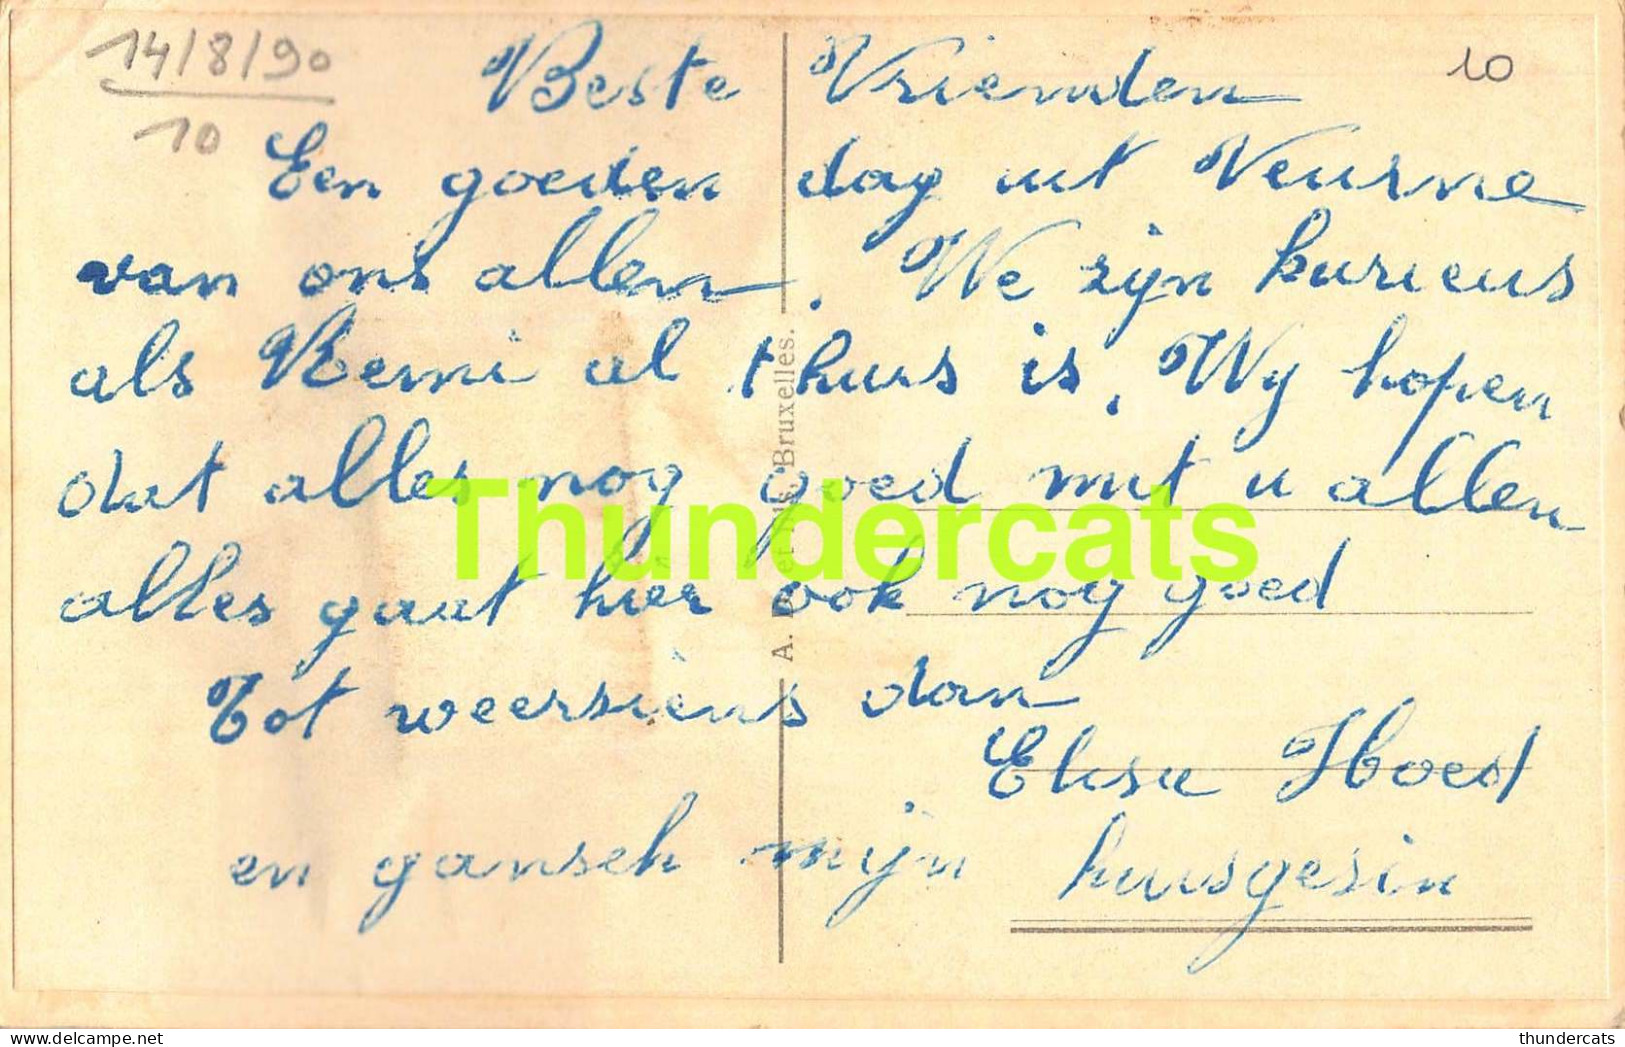 14/8/90
10
10
Beste Vrienden
Een goeden dag uit Veurne
van ons allen. We zijn kurieus
als Remi al thuis is. Wy hopen
dat alles nog goed met u allen
alles gaat hier ook nog goed
Tot weersiens dan
Elisa
en gansch mijn huisgesin
Bruxelles.
Thundercats
thundercats